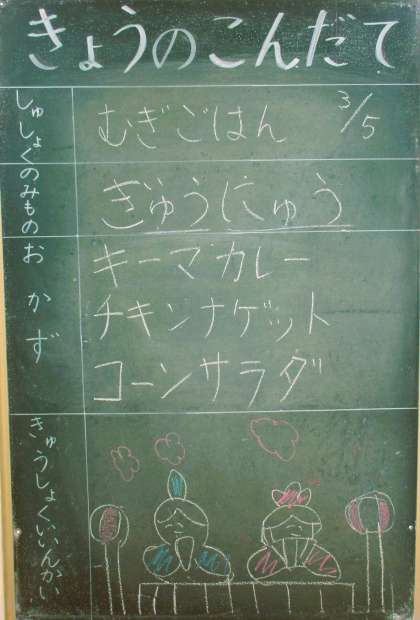 きょうのこんだて
しゅしょく
むぎごはん 3/5
のみもの
ぎゅうにゅう
おかず
キーマカレー
チキンナゲット
コーンサラダ
きゅうしょくいいんかい